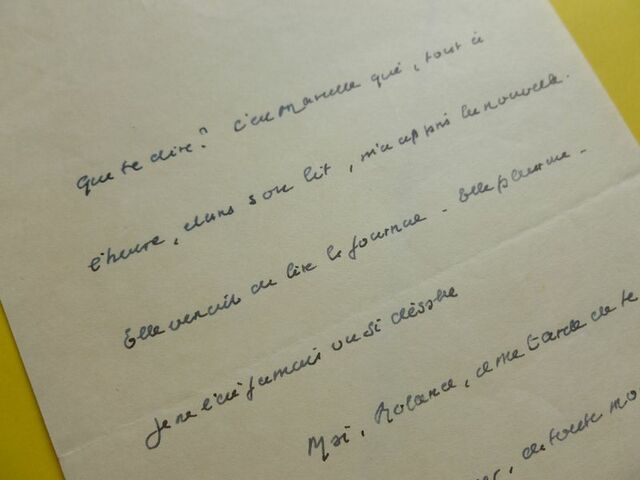 Que te dire? C'est Marcelle qui, tout à
l'heure, dans son lit, m'a appris la nouvelle.
Elle venait de lire le journal - Elle pleurait -
Je ne l'ai jamais vu si
Moi, Roland, il me tarde de te
de toute mo